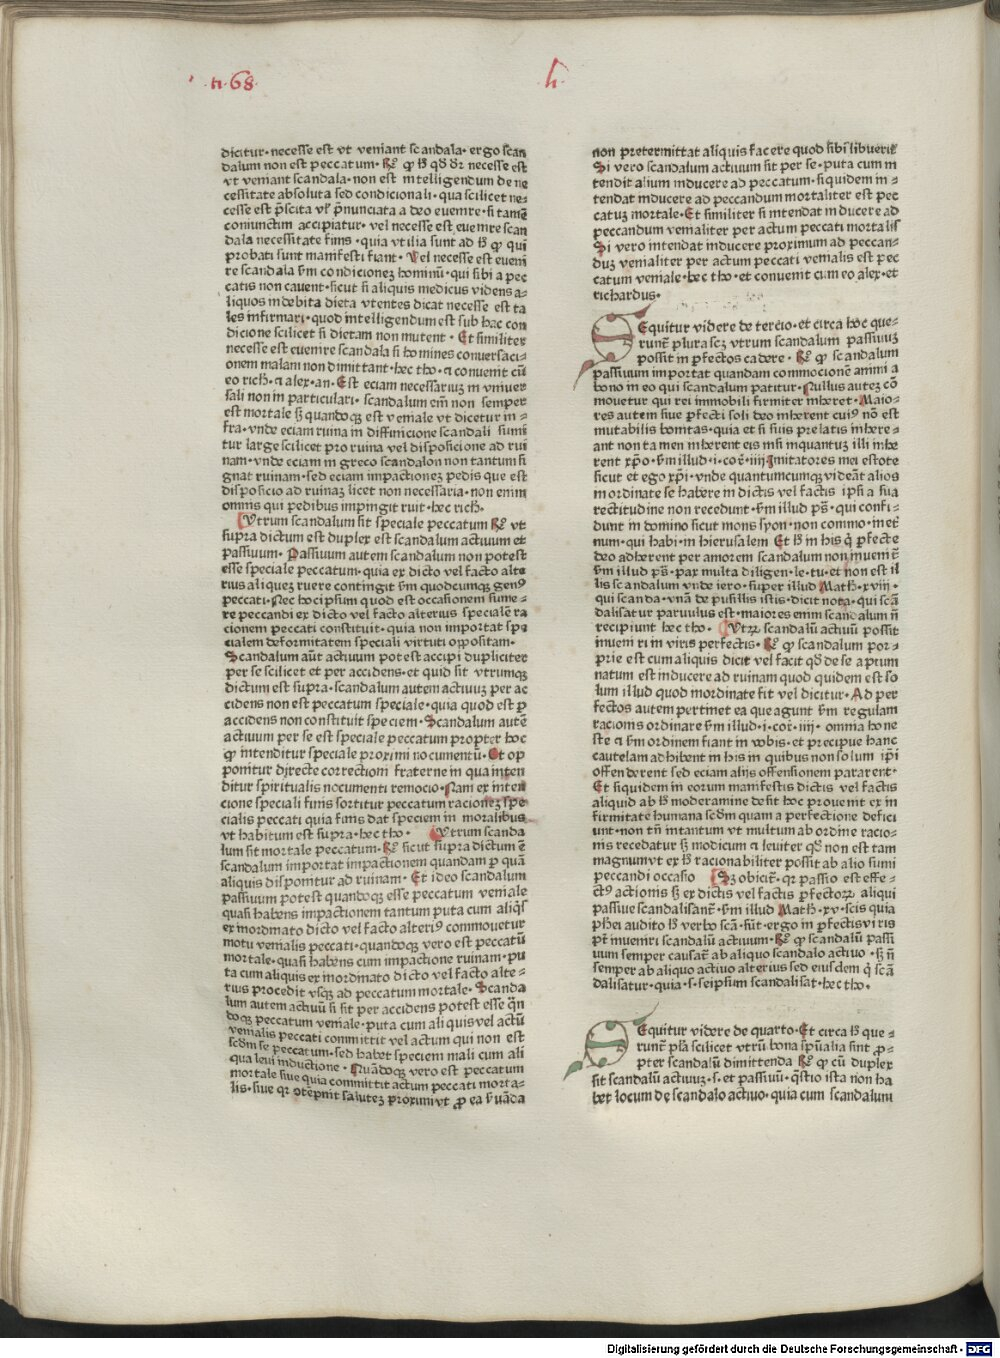 n 68
h
dicitur· necesse est vt veniant scandala· ergo scan
dalum non est peccatum· Rͦ ꝙ hͦ qđ dr̄ necesse est
vt veniant scandala· non est intelligendum de ne
cessitate absoluta sed condicionali· qua scilicet ne-
cesse est p̄scita vel p̄nunciata a deo euenire· si tamē
coniunctim accipiatur· vel necesse est euenire scan
dala necessitate finis· quia vtilia sunt ad hͦ ꝙ qui
probati sunt manifesti fiant· Vel necesse est eueni
re scandala ẜm condicionez hominū· qui sibi a pec
catis non cauent· sicut si aliquis medicus videns a-
liquos indebita dieta vtentes dicat necesse est ta
les infirmari· quod intelligendum est sub hac con
dicione scilicet si dietam non mutent· Et similiter
necesse est euenire scandala si homines conuersaci-
onem malam non dimittant· hec tho· ⁊ conuenit cū
eo rich· ⁊ alex· an· Est eciam necessariuz in vniuer
sali non in particulari· scandalum em̄ non semper
est mortale sꝫ quandoqꝫ est veniale vt dicetur in-
fra· vnde eciam ruina in diffinicione scandali sumi
tur large scilicet pro ruina vel disposicione ad rui
nam· vnde eciam in greco scandalon non tantum si
gnat ruinam· sed eciam impactionez pedis que est
disposicio ad ruinaz licet non necessaria· non enim
omnis qui pedibus impingit ruit· hec rich·
Vtrum scandalum sit speciale peccatum Rͦ vt
supra dictum est duplex est scandalum actiuum et
passiuum· Passiuum autem scandalum non potest
esse speciale peccatum· quia ex dicto vel facto alte
rius aliquez ruere contingit ẜm quodcumqꝫ genꝰ
peccati· Nec hoc ipsum quod est occasionem sume-
re peccandi ex dicto vel facto alterius specialē ra
cionem peccati constituit· quia non importat spe
cialem deformitatem speciali virtuti oppositam·
Scandalum aūt actiuum potest accipi dupliciter
per se scilicet et per accidens· et quid sit vtrumqꝫ
dictum est supra· scandalum autem actiuuz per ac
cidens non est peccatum speciale· quia quod est ꝑ
accidens non constituit speciem· Scandalum autē
actiuum per se est speciale peccatum propter hoc
ꝙ intenditur speciale proximi nocumentū· Et op
ponitur directe correctioni fraterne in qua inten
ditur spiritualis nocumenti remocio· Nam ex inten
cione speciali finis sortitur peccatum racionez spe
cialis peccati quia finis dat speciem in moralibus
vt habitum est supra· hec tho· Vtrum scanda
lum sit mortale peccatum· Rͦ sicut supra dictum ē
scandalum importat impactionem quandam ꝑ quā
aliquis disponitur ad ruinam· Et ideo scandalum
passiuum potest quandoqꝫ esse peccatum veniale
quasi habens impactionem tantum puta cum aliq̄s
ex inordinato dicto vel facto alteriꝰ commouetur
motu venialis peccati· quandoqꝫ vero est peccatū
mortale· quasi habens cum impactione ruinam· pu
ta cum aliquis ex inordinato dicto vel facto alte-
rius procedit vsqꝫ ad peccatum mortale· Scanda
lum autem actiuū si sit per accidens potest esse qn̄
doqꝫ peccatum veniale· puta cum aliquis vel actū
venialis peccati committit vel actum qui non est
scdm se peccatum· sed habet speciem mali cum ali
qua leui inductione· Quādoqꝫ vero est peccatum
mortale siue quia committit actum peccati morta-
lis· siue qꝛ ꝯtempnit salutez proximi vt ꝓ ea ẜuāda
non pretermittat aliquis facere quod sibi libuerit
Si vero scandalum actiuum sit per se· puta cum in
tendit alium inducere ad peccatum· siquidem in-
tendat inducere ad peccandum mortaliter est pec
catuz mortale· Et similiter si intendat inducere ad
peccandum venialiter per actum peccati mortalis
Si vero intendat inducere proximum ad peccan-
duz venialiter per actum peccati venialis est pec
catum veniale· hec tho· et conuenit cum eo alex· et
richardus·
Sequitur videre de tercio· et circa hoc que-
runt̄ plura scz vtrum scandalum passiuuz
possit in ꝑfectos cadere· Rͦ ꝙ scandalum
passiuum importat quandam commocionem animi a
bono in eo qui scandalum patitur· Nullus autez cō
mouetur qui rei immobili firmiter inheret· Maio-
res autem siue ꝑfecti soli deo inherent cuiꝰ nō est
mutabilis bonitas· quia et si suis prelatis inhere-
ant non tamen inherent eis nisi inquantuz illi inhe
rent xp̄o· ẜm illud· i· cor̄· iiij· Imitatores mei estote
sicut et ego xp̄i· vnde quantumcumqꝫ videāt alios
inordinate se habere in dictis vel factis ipsi a sua
rectitudine non recedunt· ẜm illud ps̄· qui confi-
dunt in domino sicut mons syon· non commo· in et̄
num· qui habi· in hierusalem Et hͦ in his q̄ ꝑfecte
deo adherent per amorem scandalum non inuenit̄
ẜm illud ps̄· pax multa diligen· le· tu· et non est il
lis scandalum vnde iero· super illud Math· xviij·
qui scanda· vnū de pusillis istis· dicit nota· qui scā
dalisatur paruulus est· maiores enim scandalum n̄
recipiunt hec tho· Vtꝝ scandalū actiuū possit
inueniri in viris perfectis· Rͦ ꝙ scandalum pro-
prie est cum aliquis dicit vel facit qđ de se aptum
natum est inducere ad ruinam quod quidem est so
lum illud quod inordinate fit vel dicitur· Ad per
fectos autem pertinet ea que agunt ẜm regulam
racionis ordinare ẜm illud· i· cor̄· iiij· omnia hone
ste ⁊ ẜm ordinem fiant in vobis· et precipue hanc
cautelam adhibent in his in quibus non solum ip̄i
offenderent sed eciam alijs offensionem pararent·
Et siquidem in eorum manifestis dictis vel factis
aliquid ab hͦ moderamine desit hoc prouenit ex in
firmitate humana scdm quam a perfectione defici
unt· non tn̄ intantum vt multum ab ordine racio-
nis recedatur sꝫ modicum ⁊ leuiter qđ non est tam
magnum vt ex hͦ racionabiliter possit ab alio sumi
peccandi occasio Sꝫ obicit̄· qꝛ passio est effe-
ctꝰ actionis sꝫ ex dictis vel factis ꝑfectoꝝ aliqui
passiue scandalisant̄· ẜm illud Math· xv· scis quia
phei audito hͦ verbo scā· sūt· ergo in ꝑfectis viris
pt̄ inueniri scandalū actiuum· Rͦ ꝙ scandalū passi
uum semper causat̄ ab aliquo scandalo actiuo· sꝫ n̄
semper ab aliquo actiuo alterius sed eiusdem q̄ scā
dalisatur· quia· s· seipsum scandalisat· hec tho·
Sequitur videre de quarto· Et circa hͦ que-
runt̄ pla scilicet vtrū bona spūalia sint ꝓ-
pter scandalū dimittenda Rͦ ꝙ cū duplex
sit scandalū actiuuz· s· et passiuū· q̄stio ista non ha
bet locum de scandalo actiuo· quia cum scandalum
Digitalisierung gefördert durch die Deutsche Forschungsgemeinschaft - DFG